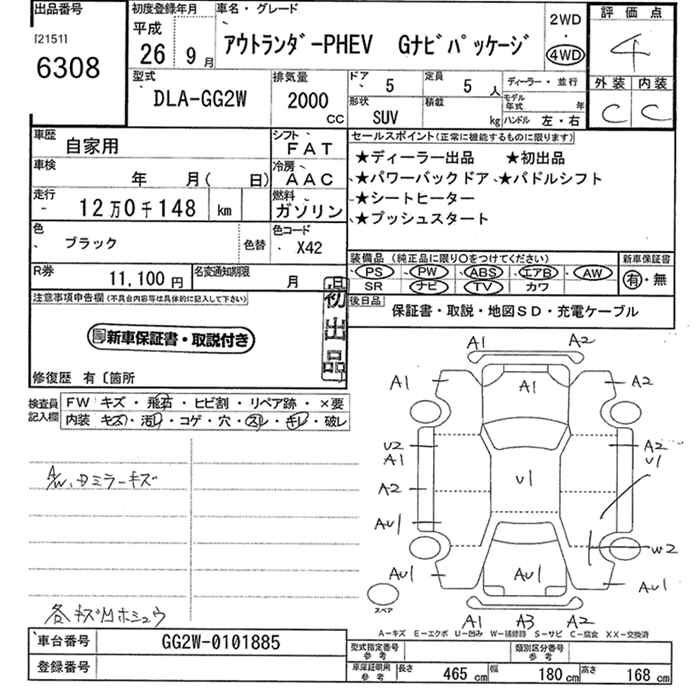 出品番号 初度登録年月 車名・グレード 2WD 評価点
I21511 平成
6308 26年 9月 アウトランダ-PHEV Gナビパッケージ 4WD 4
型式 排気量 ドア 5 定員 5人 ディーラー・並行 外装 内装
DLA-GG2W 2000 CC 形状 SUV 積載 kg モデル年式 年 C C
ハンドル 左・右
車歴 自家用 シフト FAT セールスポイント(正常に機能するものに限ります)
★ディーラー出品 ★初出品
車検 年 月( 日) 冷房 AAC ★パワーバックドア ★パドルシフト
走行 12万0千148 km 燃料 ガソリン ★シートヒーター
★プッシュスタート
色 ブラック 色替 色コード X42
装備品(純正品に限り○をつけてください) 新車保証書
R券 11,100円 名変通知期限 月 PS PW ABS エアB AW 有・無
SR ナビ TV カワ
注意事項申告欄(不具合内容等は具体的に記入して下さい) 初出品 後日品 保証書・取説・地図SD・充電ケーブル
新車保証書・取説付き
修復歴 有〔箇所
検査員記入欄 FW キズ・飛石・ヒビ割・リペア跡・×要
内装 キズ・汚レ・コゲ・穴・スレ・キレ・破レ
A/W、ドミラーキズ
各キズ凹ホシュウ
A1 A2
A1 A1 A2
U2 A2
A1 U1 U1
A2
AU1 W2
AU1 AU1 AU1
スペア
A1 A3 A2
A-キズ E-エクボ U-凹み W-補修跡 S-サビ C-腐食 XX-交換済
車台番号 GG2W-0101885 型式指定番号 参考 類別区分番号 参考
登録番号 車庫証明用 参考 長さ 465 cm 幅 180 cm 高さ 168 cm